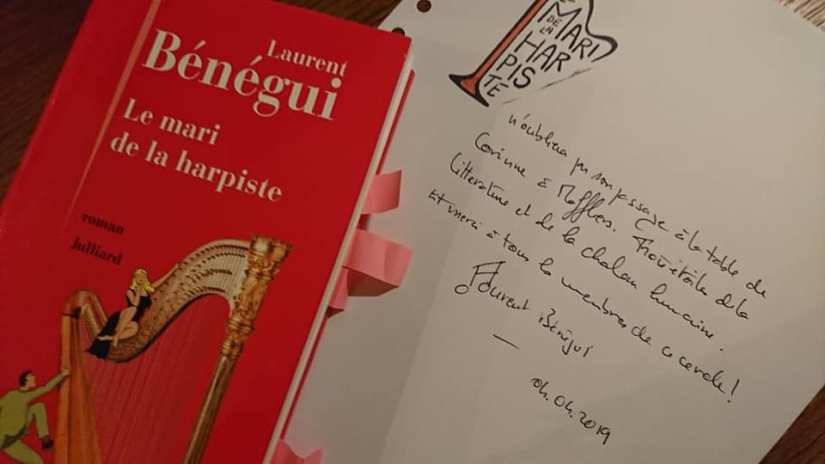 Laurent
Bénégui
Le mari
de la harpiste
roman
Julliard
LE
MARI
DE
LA
HARPISTE
n'oubliera pas son passage à la table de
Corinne à Maffliers. Trois étoiles de la
littérature et de la chaleur humaine.
Et merci à tous les membres de ce cercle !
Laurent Bénégui
04.04.2019